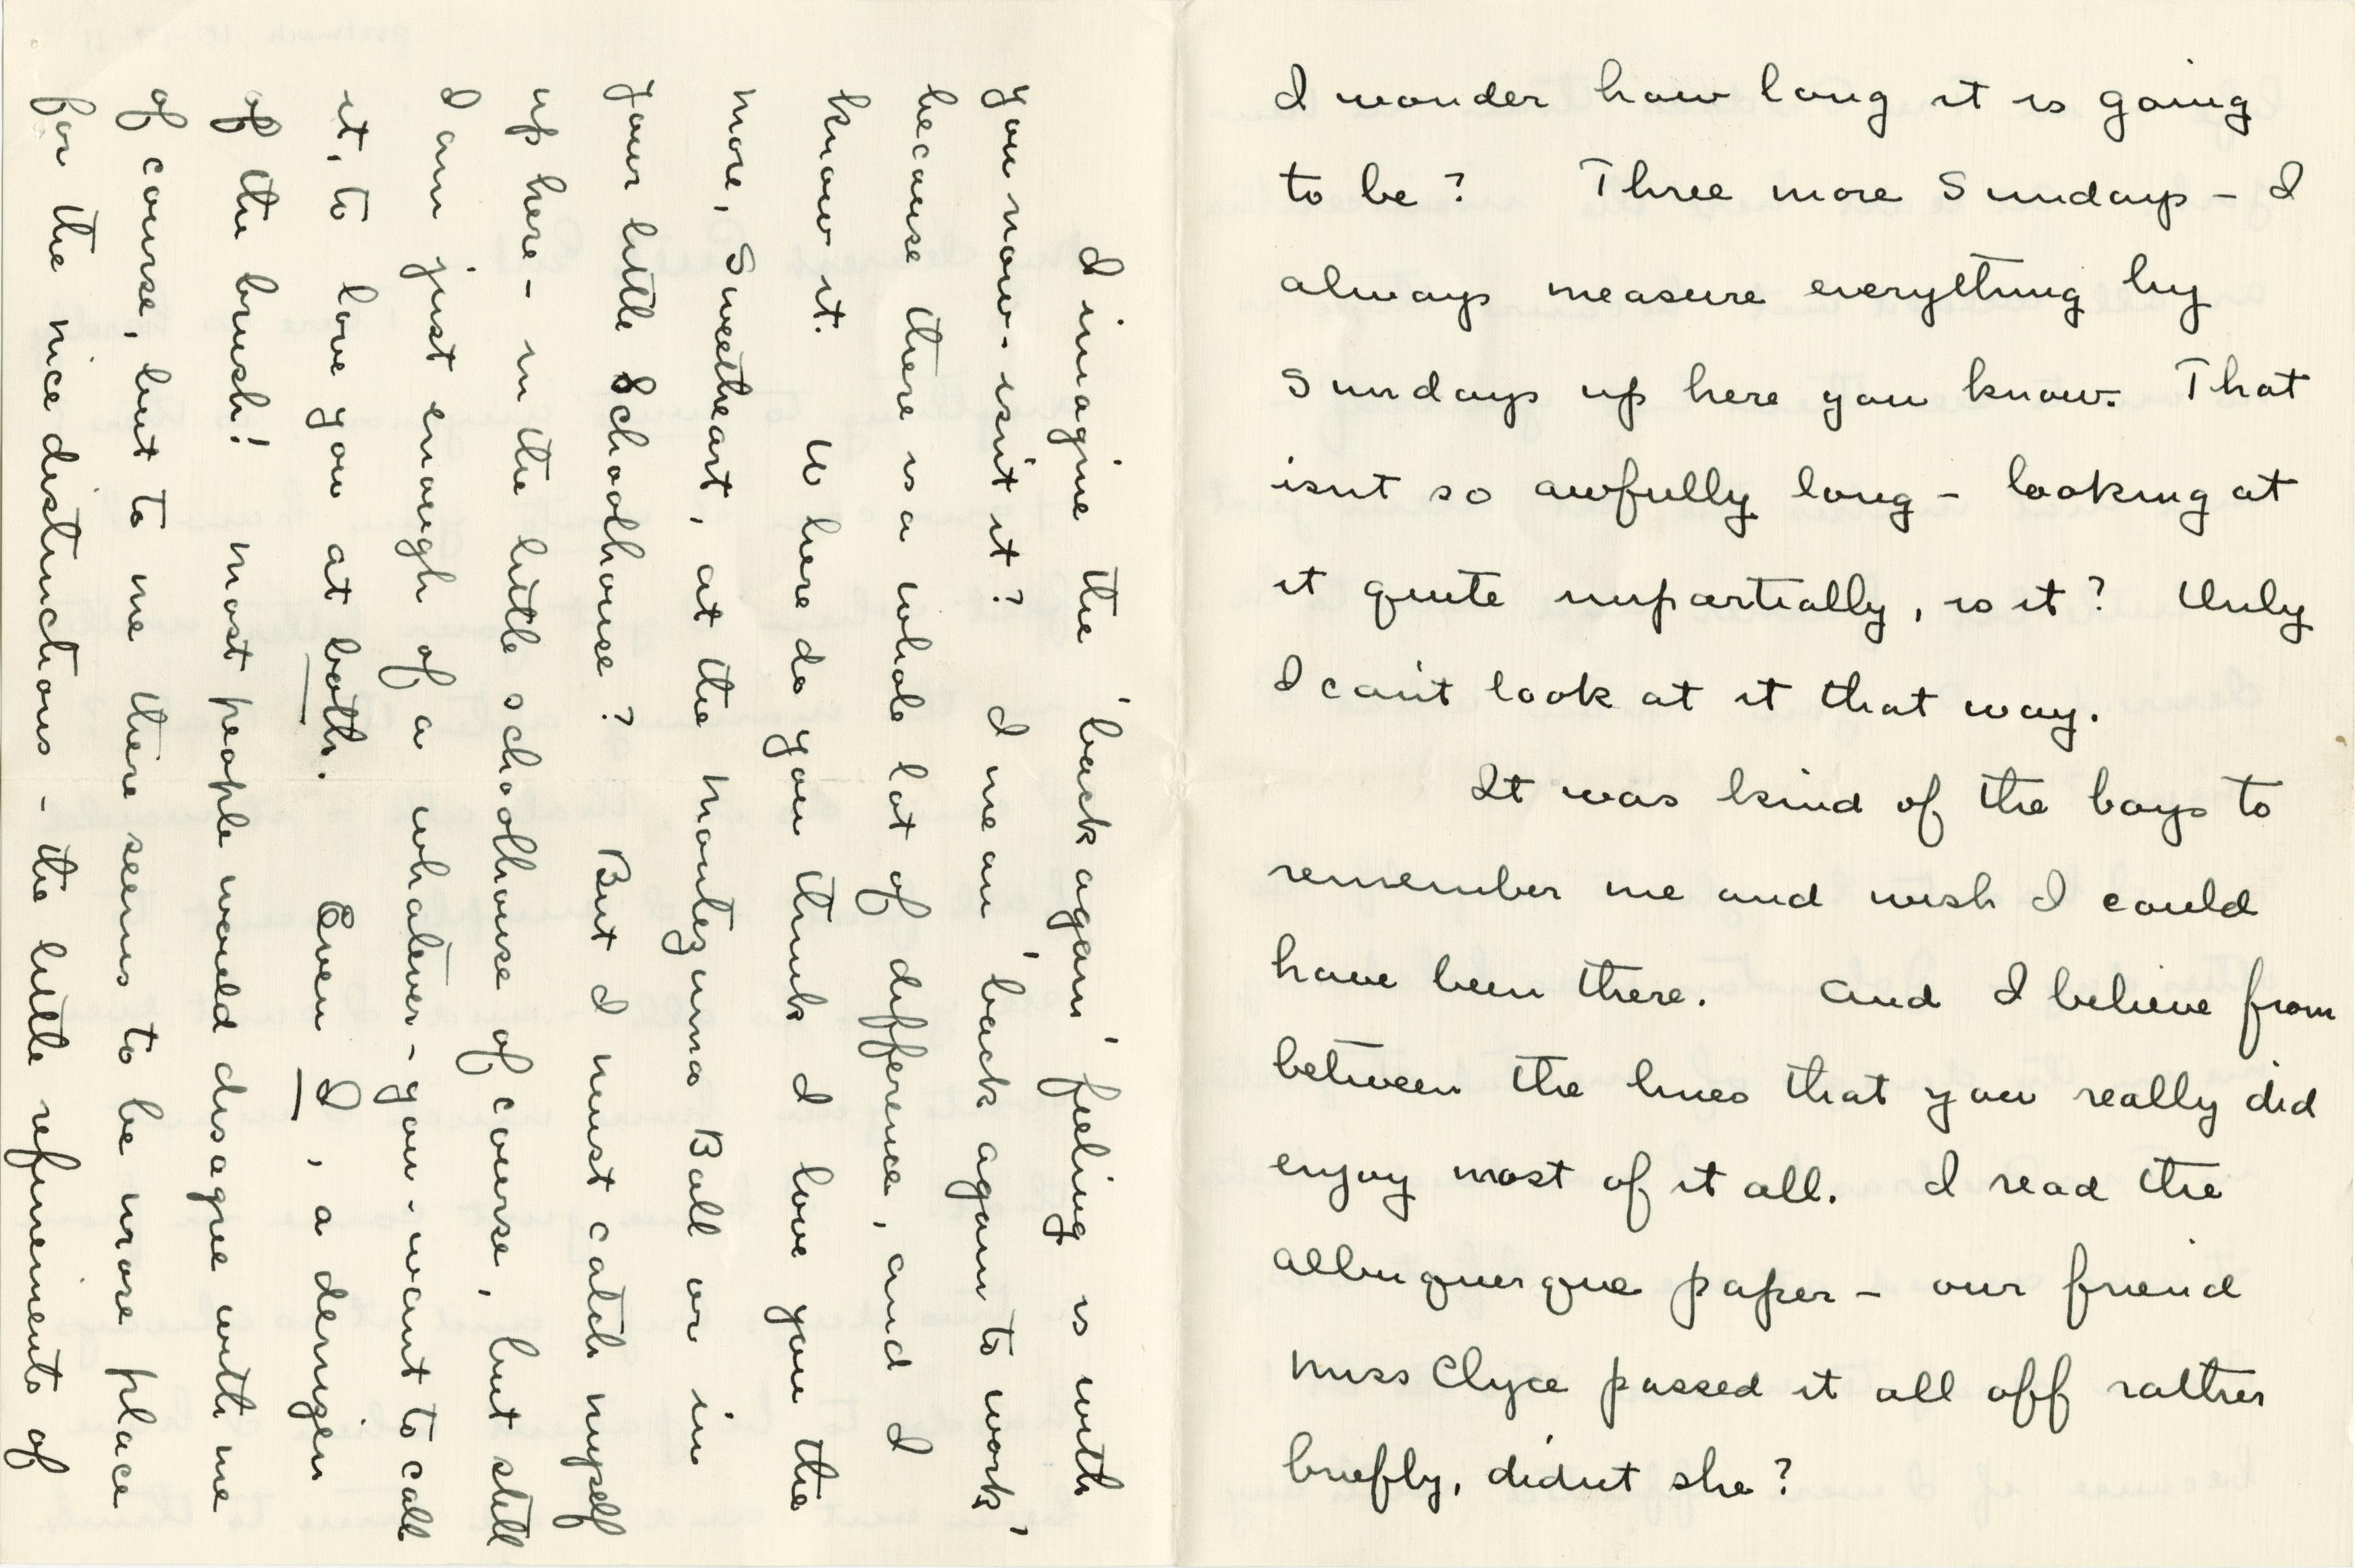 I wonder how long it is going
to be? Three more Sundays – I
always measure everything by
Sundays up here you know. That
isn't so awfully long – looking at
it quite impartially, is it? Only
I can't look at it that way.
It was kind of the boys to
remember me and wish I could
have been there. And I believe from
between the lines that you really did
enjoy most of it all. I read the
Albuquerque paper – our friend
Miss Clyce passed it all off rather
briefly, didn't she?
I imagine the 'back again' feeling is with
you now - isn't it? I mean 'back again to work'
because there is a whole lot of difference, and I
know it. Where do you think I love you the
more, Sweetheart, at the Montezuma Ball or in
your little Schoolhouse? But I must catch myself
up here – in the little schoolhouse of course, but still
I am just enough of a whatever-you-want to call
it, to love you at both. Even I, a denizen
of the brush! Most people would disagree with me
of course, but to me there seems to be more place
for the nice distinctions – the little refinements of